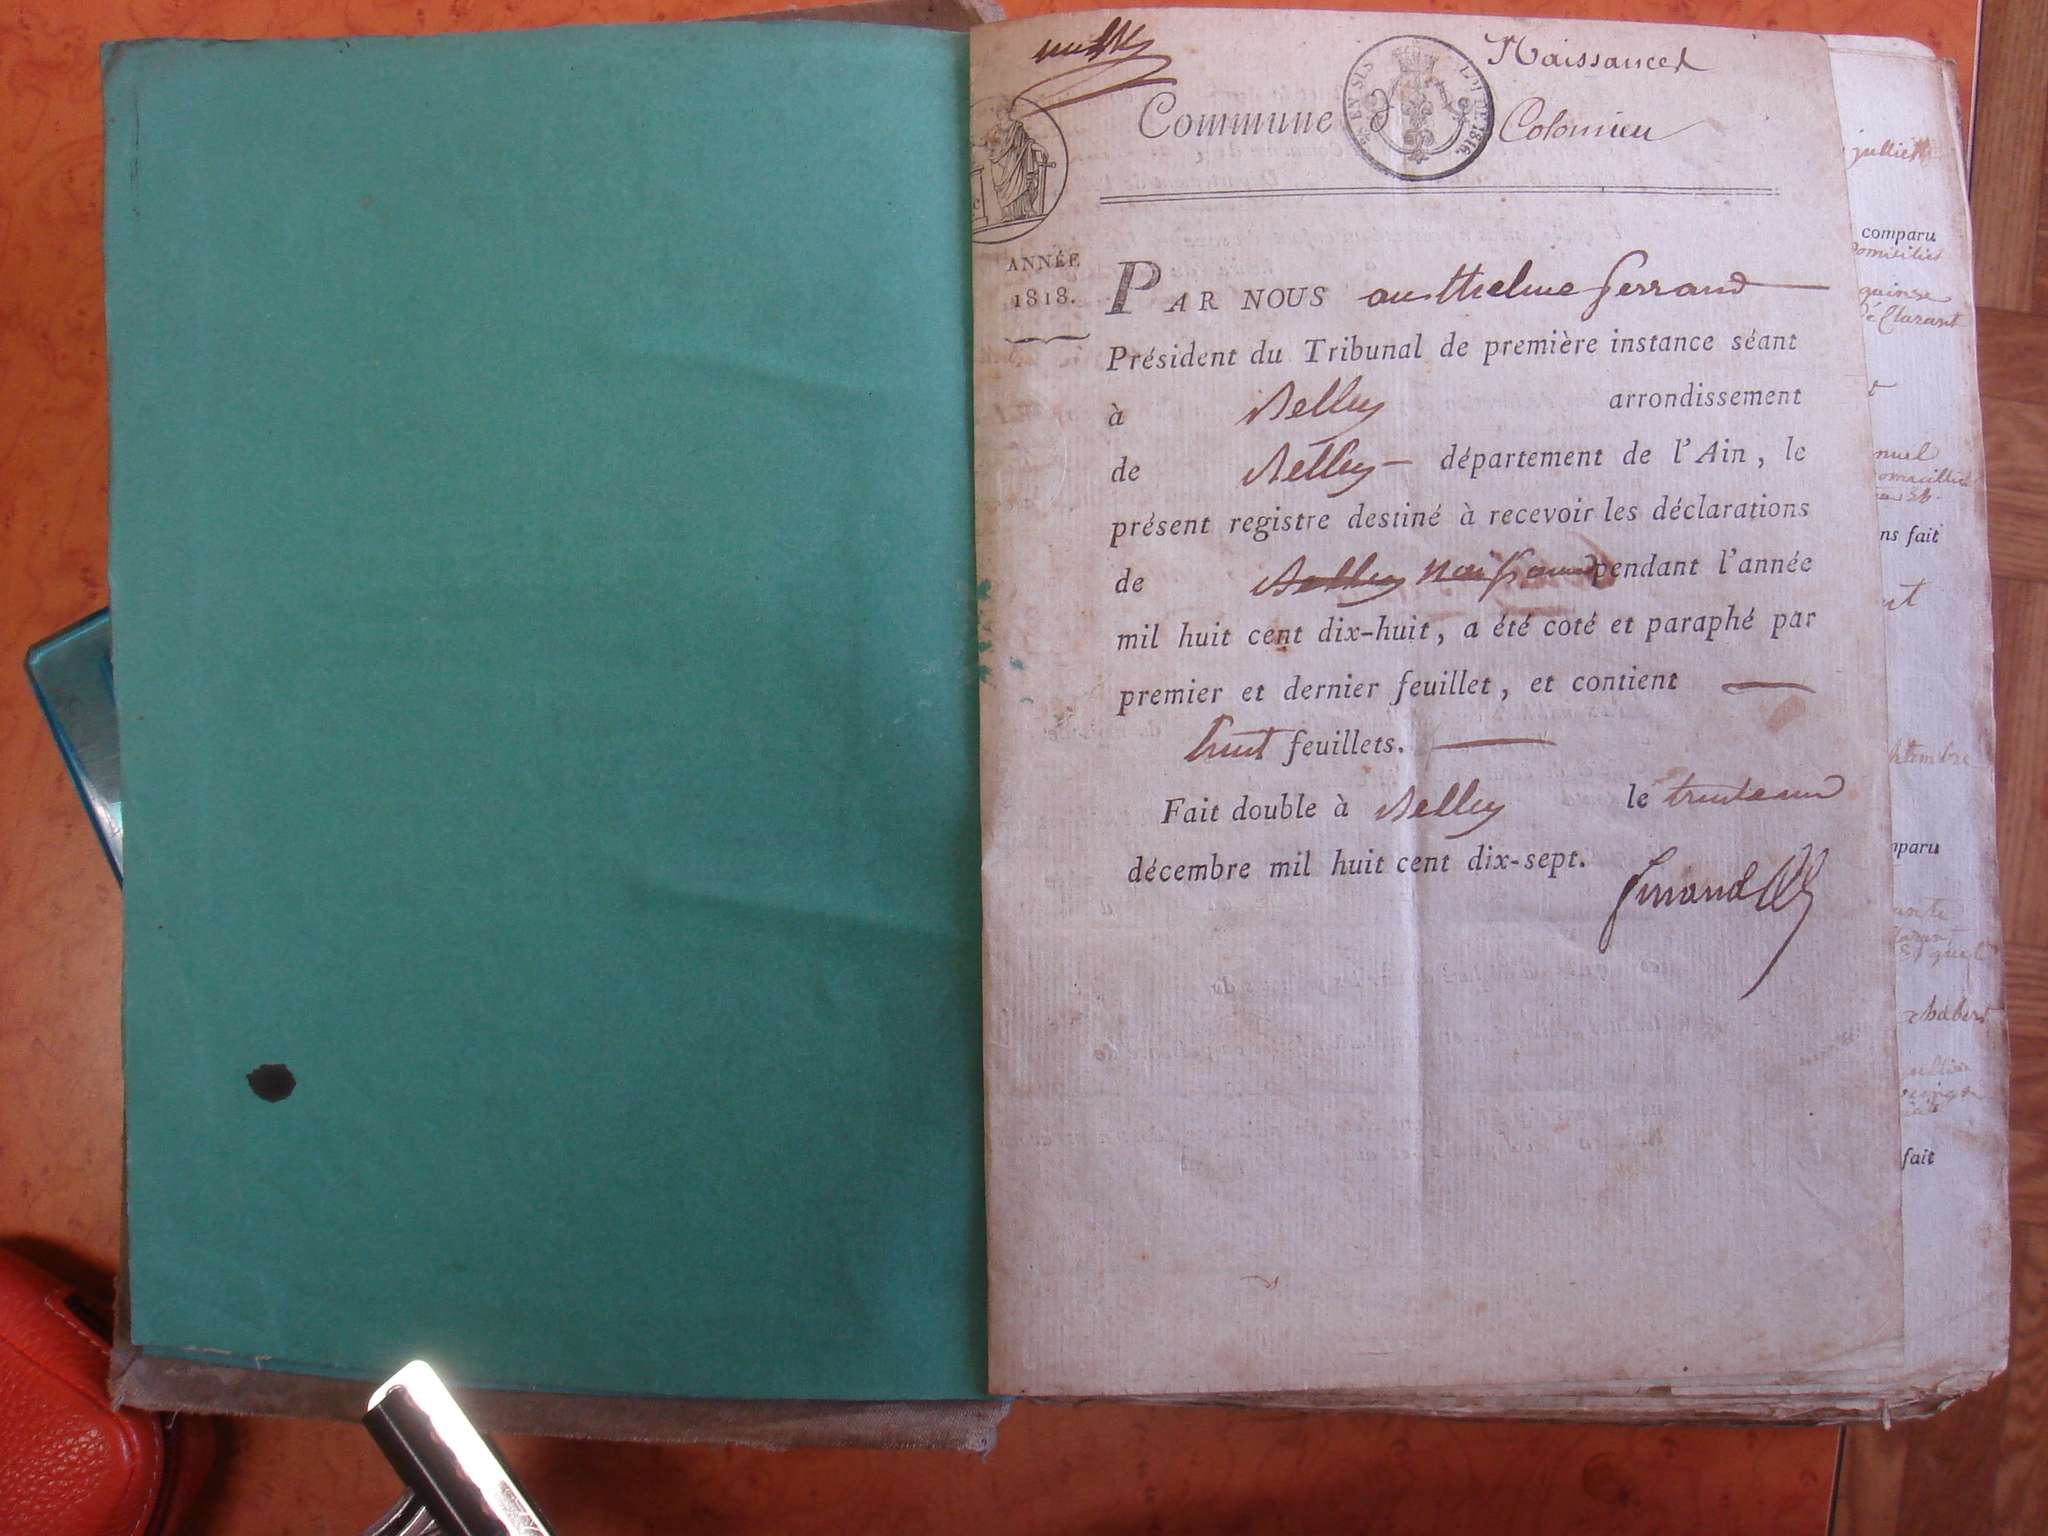 Naissances
Commune Colomieu
EN SUS LOI DE 1816.
ANNÉE
1818.
PAR NOUS anthelme ferrand
Président du Tribunal de première instance séant
à Belley arrondissement
de Belley département de l'Ain, le
présent registre destiné à recevoir les déclarations
de Belley Naissances pendant l'année
mil huit cent dix-huit, a été coté et paraphé par
premier et dernier feuillet, et contient
huit feuillets.
Fait double à Belley le trente un
décembre mil huit cent dix-sept.
ferrand
comparu
quinse
Déclarant
ns fait
mparu
fait